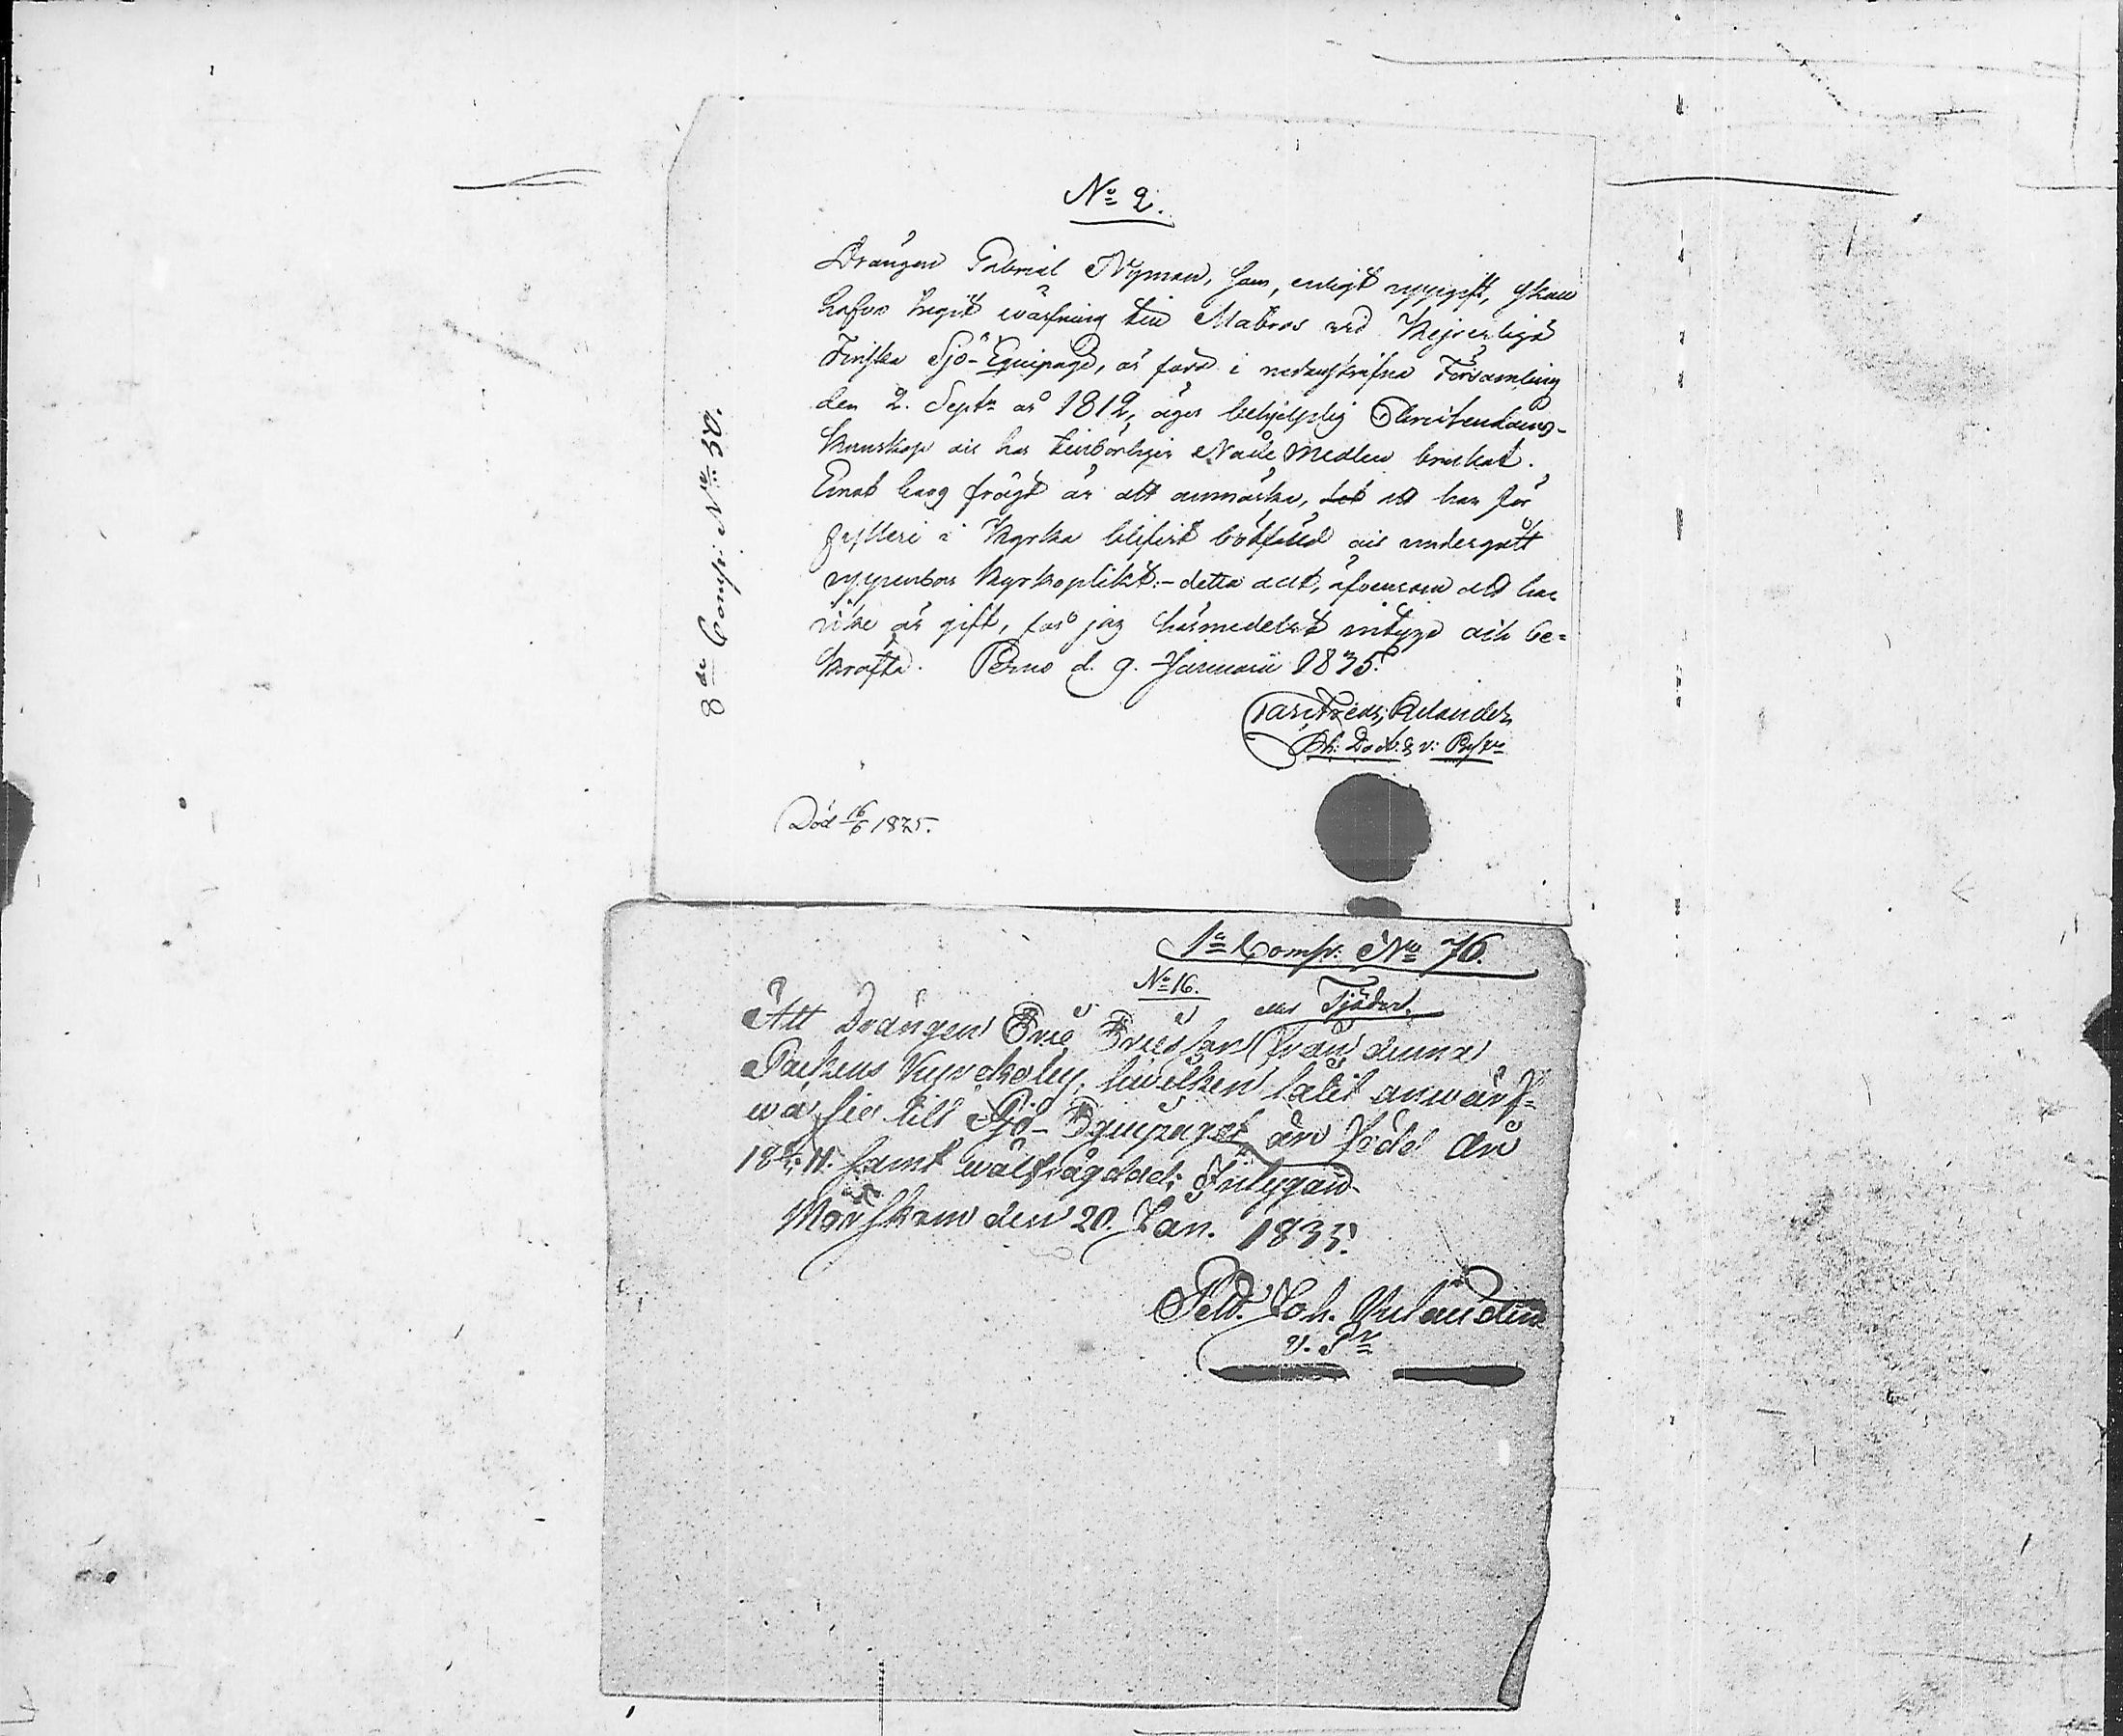 8de Comp: No 50.
No 2.
Drängen Gabriel Nyman, som, enligt uppgift, skall
hafva tagit värfning till Matros vid Kejserliga
Finska Sjö-Equipage, är född i nedanskrifna Församling
den 2. Septr år 1812, äger behjelplig Christendoms-
kunskap och har tillbörligen Nådemedlen brukat.
Emot hans frägd är att anmärka, det att han för
fylleri i Kyrka blifvit bötfälld och undergått
uppenbar Kyrkoplikt:- detta allt, äfvensom att han
icke är gift, får jag härmedelst intyga och be-
kräfta. Perno d. 9. Januarii 1835.
Carl Fredr: Relander
Ph: Doct. & v: Past
Död 16/6 1835.
1a Comp: No 76.
No 16. eller Tjäder.
Att Drängen Eric Ericsson från denna
Sockens Kyrckoby, hwilken låtit anwärf-
wa sig till Sjö-Equipaget är född År
18 11. samt wälfrägdad; Intygar
Mörskom den 20. Jan. 1835.
Joh.
v. Pr